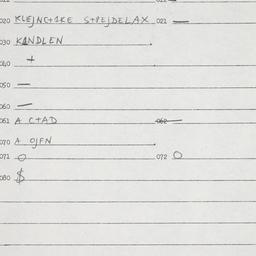 020 KLEJNC+AKE S+REJDELAX 021 —
030 KANDLEN
040 +
050 —
060 —
061 A C+AD 062 —
070 A OJFN
071 O 072 O
080 $